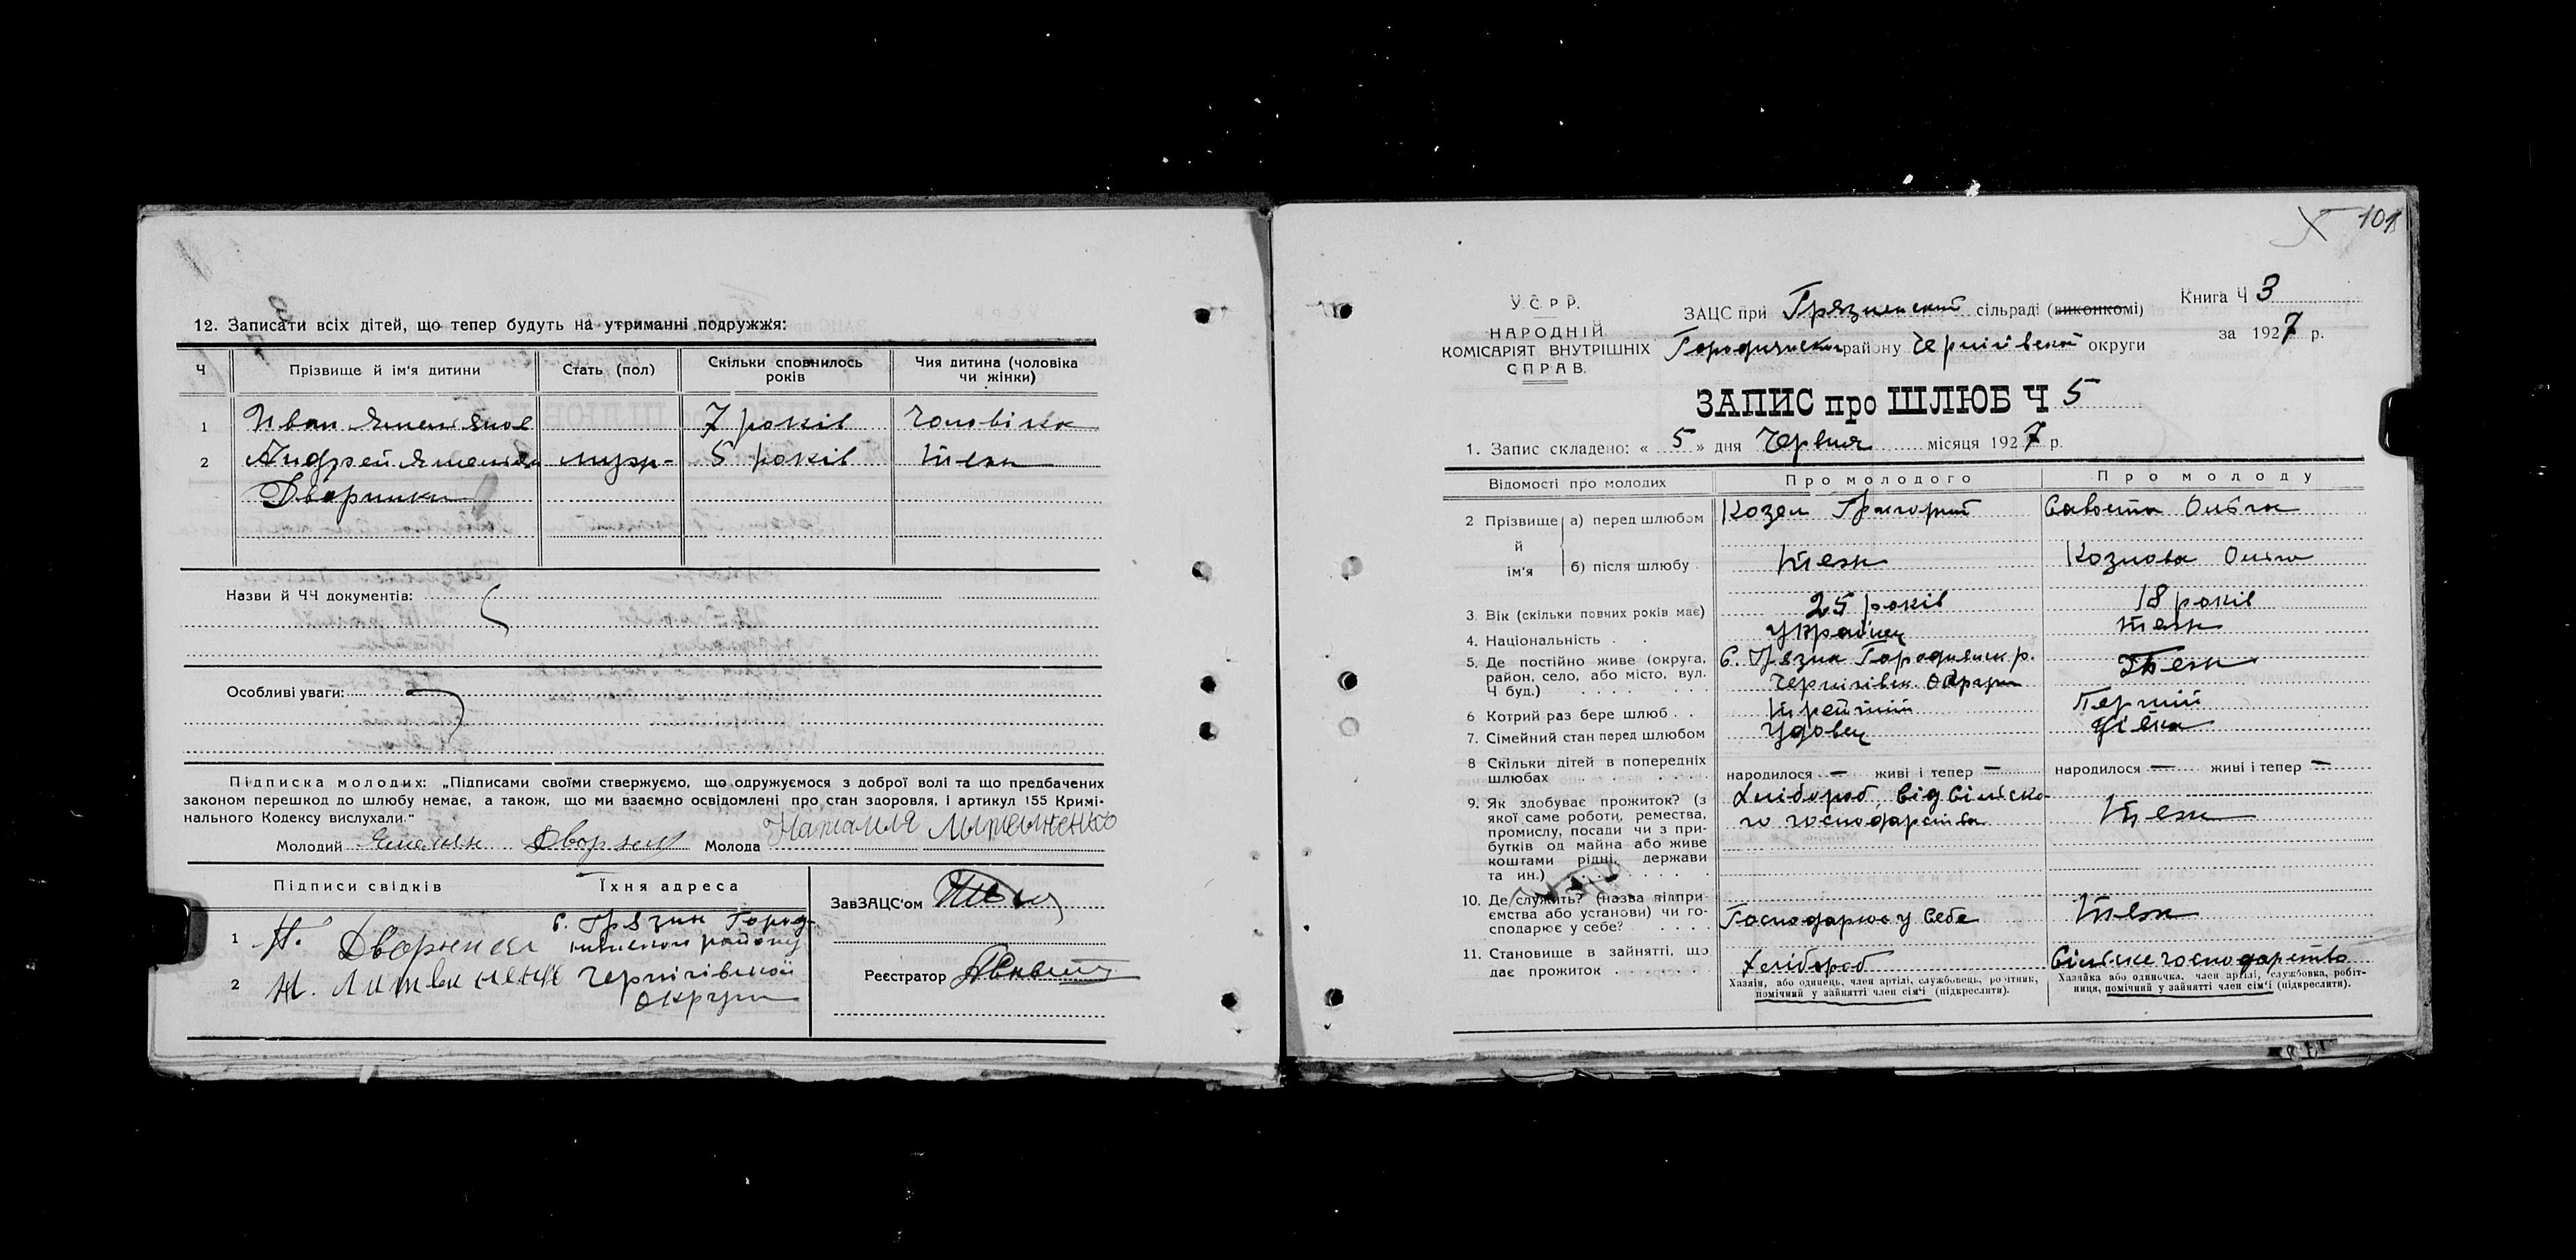 12. Записати всіх дітей, що тепер будуть на утриманні подружжя:
Ч
Прізвище й ім'я дитини
Стать (пол)
Скільки сповнилось
років
Чия дитина (чоловіка
чи жінки)
1 Иван 7 років Чоловіка
2 Андрей муж- 5 років теж
Назви й ЧЧ документів:
Особливі уваги:
Підписка молодих: „Підписами своїми стверджуємо, що одружуємося з доброї волі та що предбачених
законом перешкод до шлюбу немає, а також, що ми взаємно освідомлені про стан здоровля, і артикул 155 Кримі-
нального Кодексу вислухали."
Молодий Молода Наталия
Підписи свідків
Їхня адреса
1
с. Грязни Город-
району
2
Чернігівської
округи
ЗавЗАЦС'ом
Реєстратор
101
У.С.Р.Р.
НАРОДНІЙ
КОМІСАРІЯТ ВНУТРІШНІХ
СПРАВ.
ЗАЦС при Грязненській сільраді (виконкомі)
району Чернігівської округи
Книга Ч 3
за 1927 р.
ЗАПИС про ШЛЮБ Ч 5
1. Запис складено: « 5 » дня Червня місяця 1927 р.
Відомості про молодих
Про молодого
Про молоду
2 Прізвище й ім'я
а) перед шлюбом Козел Григорий Ольга
б) після шлюбу теж Козлова Ольга
3. Вік (скільки повних років має) 25 років 18 років
4. Національність українец теж
5. Де постійно живе (округа, район, село, або місто, вул. Ч буд.)
С. Грязна Городнянск р.
Чернігівск. Округи
теж
6 Котрий раз бере шлюб третий Перший
7. Сімейний стан перед шлюбом Удовец дівка
8 Скільки дітей в попередніх шлюбах
народилося — живі і тепер —
народилося — живі і тепер —
9. Як здобуває прожиток? (з якої саме роботи, ремества, промислу, посади чи з прибутків од майна або живе коштами рідні, держави та ин.)
Хлібороб, від сільско-
го господарства
теж
10. Де служить? (назва підприємства або установи) чи господарює у себе?
Господарює у себе
теж
11. Становище в зайнятті, що дає прожиток
Хлібороб
Сільске господарство
Хазяїн, або одинець, член артілі, службовець, робітник,
помічний у зайнятті член сім'ї (підкреслити).
Хазяйка або одиночка, член артілі, службовка, робіт-
ниця, помічний у зайнятті член сім'ї (підкреслити).